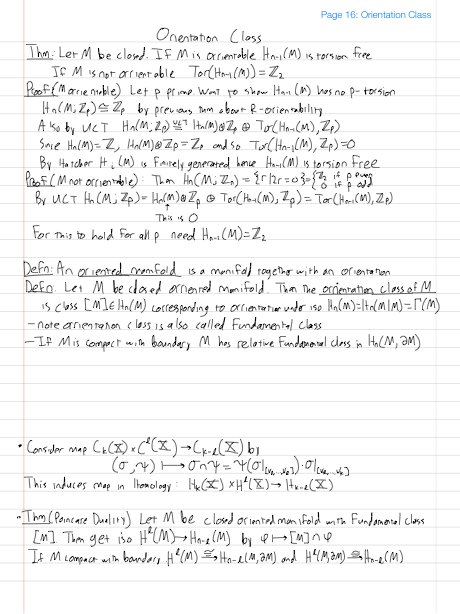 Page 16: Orientation Class
Orientation Class
Thm: Let M be closed. If M is orrientable Hn-1(M) is torsion free
If M is not orrientable Tor(Hn-1(M)) = ℤ2
Proof (M orrientable) Let p prime. Want to show Hn-1(M) has no p-torsion
Hn(M; ℤp) ≅ ℤp by previous thm about R-orientability
Also by UCT Hn(M; ℤp) ≅ Hn(M)⊗ℤp ⊕ Tor(Hn-1(M), ℤp)
Since Hn(M) = ℤ, Hn(M)⊗ℤp = ℤp and so Tor(Hn-1(M), ℤp) = 0
By Hatcher Hi(M) is finitely generated hence Hn-1(M) is torsion free
Proof (M not orrientable): Then Hn(M; ℤp) = {r | 2r = 0} = {ℤ2 if p even
0 if p odd
By UCT Hn(M; ℤp) = Hn(M)⊗ℤp ⊕ Tor(Hn-1(M), ℤp) = Tor(Hn-1(M), ℤp)
This is 0
For this to hold for all p need Hn-1(M) = ℤ2
Defn: An oriented manifold is a manifold together with an orientation
Defn: Let M be closed orriented manifold. Then the orrientation class of M
is class [M] ∈ Hn(M) corresponding to orrientation under iso Hn(M) = Hn(M|M) = Γ(M)
- note orrientation class is also called Fundamental Class
- If M is compact with boundary M has relative Fundamental class in Hn(M, ∂M)
• Consider map Ck(X) × Cℓ(X) → Ck-ℓ(X) by
(σ, ψ) ⟼ σ∩ψ = ψ(σ|[v0,..,vℓ]) · σ|[vℓ,..,vk]
This induces map in Homology: Hk(X) × Hℓ(X) → Hk-ℓ(X)
• Thm (Poincare Duality) Let M be closed oriented manifold with Fundamental class
[M]. Then get iso Hℓ(M) → Hn-ℓ(M) by φ ⟼ [M]∩φ
If M compact with boundary Hℓ(M) ≅ Hn-ℓ(M, ∂M) and Hℓ(M, ∂M) ≅ Hn-ℓ(M)